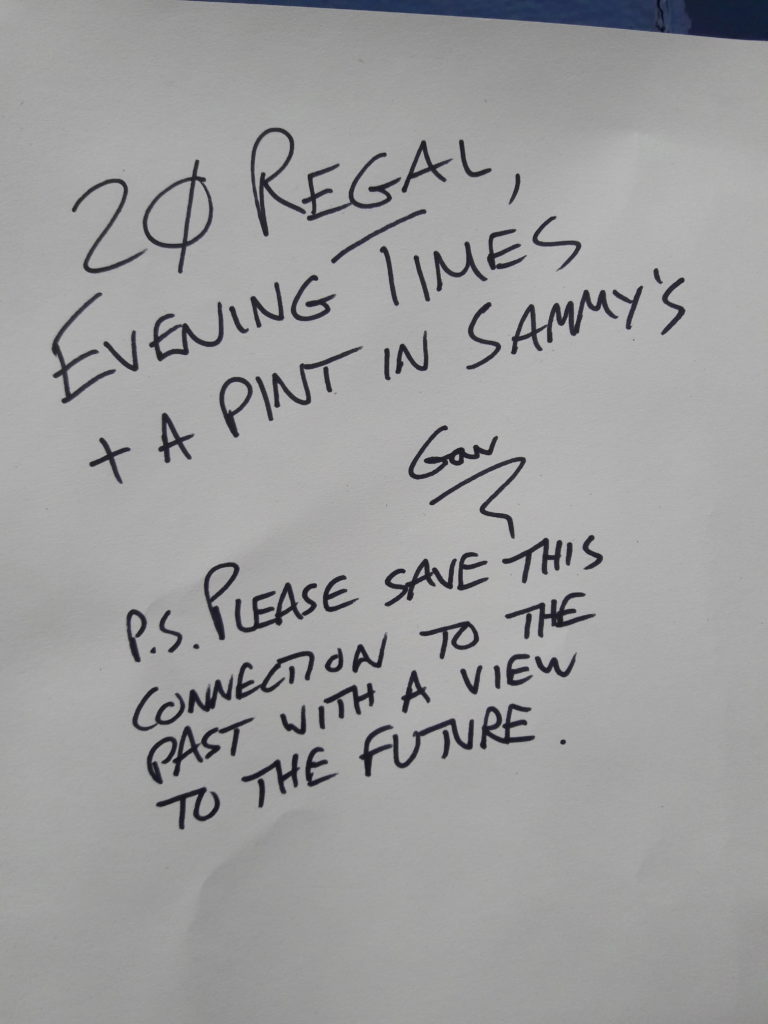 20 REGAL,
EVENING TIMES
+ A PINT IN SAMMY'S
P.S. PLEASE SAVE THIS
CONNECTION TO THE
PAST WITH A VIEW
TO THE FUTURE.